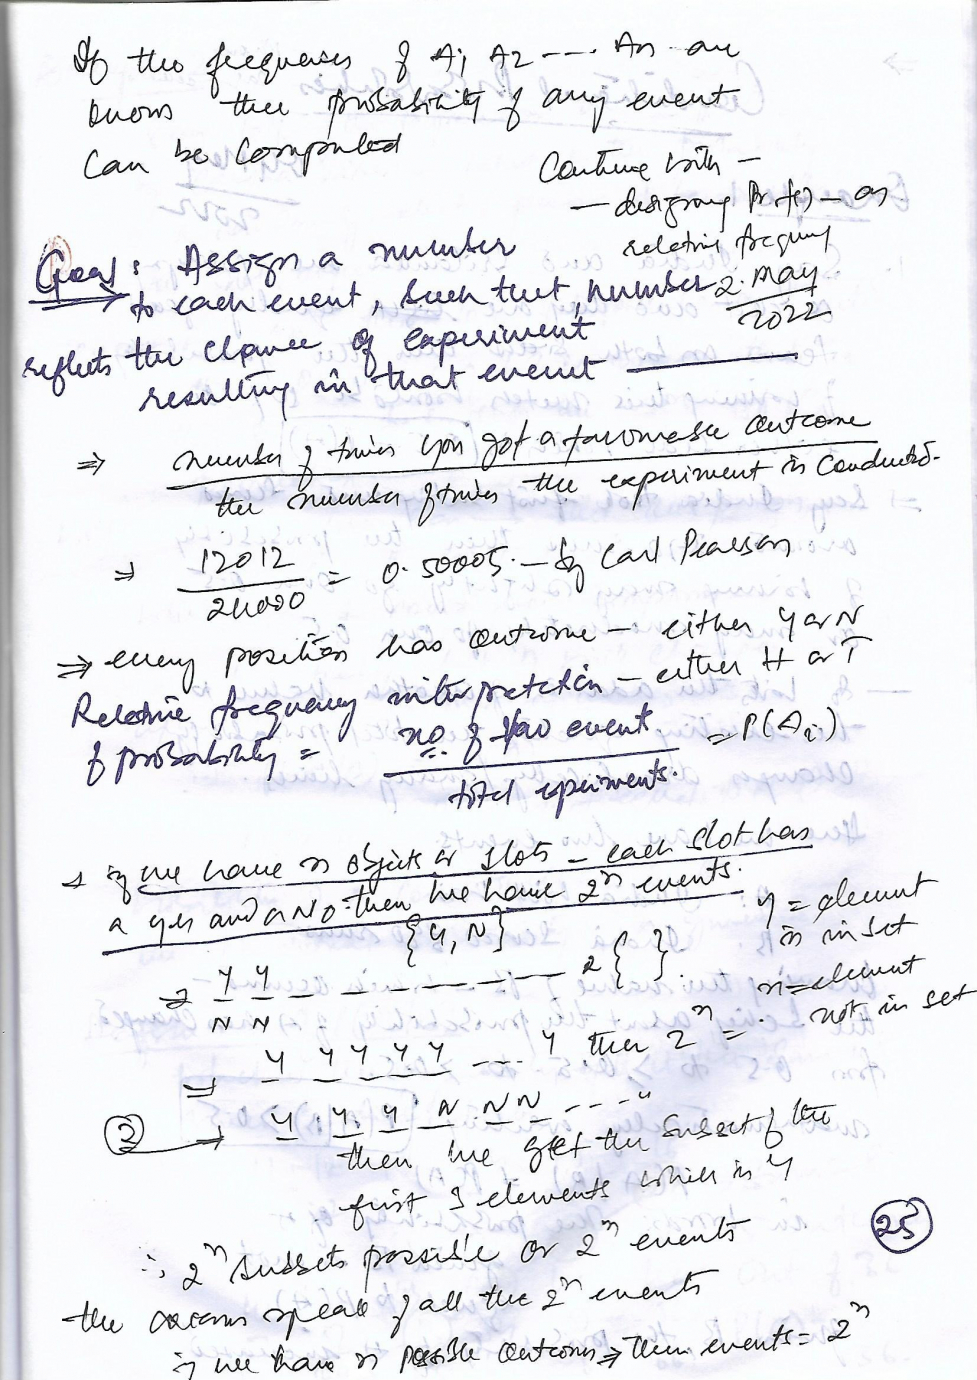 If the frequencies of A1 A2 --- An are
known then probability of any event
can be computed
Continue with -
- designing Pr f(n) - as
relative frequency
2. May
2022
Goal: Assign a number
to each event, such that, number
reflects the chance of experiment
resulting in that event
⇒ number of times you got a favourable outcome
the number of times the experiment is conducted.
⇒ 12012
24000 = 0.50005. - by Carl Pearson
⇒ every position has outcome - either Y or N
Relative frequency interpretation - either H or T
of probability = no. of fav event = P(Ai)
total experiments.
→ if we have n objects or slots - each slot has
a yes and or a No. then we have 2^n events.
{Y, N}
Y = element
is in set
⇒ Y Y - - - - - - - 2 { }.
N N
n = element
not in set
⇒ Y Y Y Y Y --- Y then 2^n =
3 → Y Y Y N N N ---- "
then we get the subset of the
first 3 elements which is Y
25
∴ 2^n subsets possible or 2^n events
the axioms speak of all the 2^n events
if we have n possible outcomes ⇒ then events = 2^n